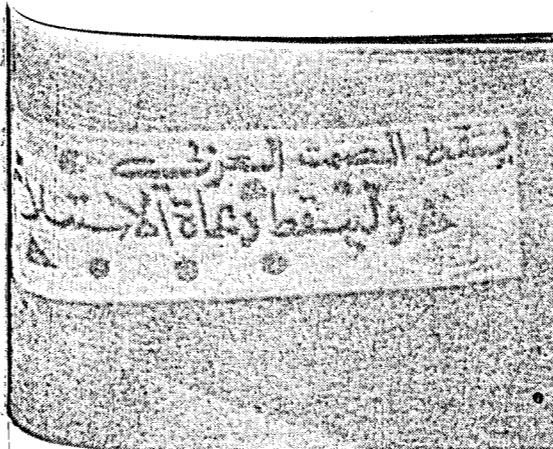 يسقط الصمت العربي
وليسقط دعاة الاستسلا